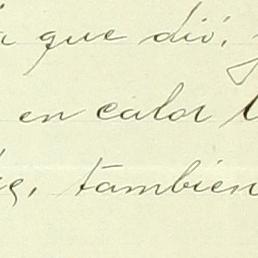 que dió,
en calor
tambien